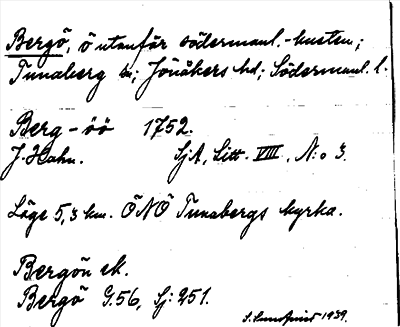 Bergö, ö utanför södermanl.-kusten;
Tunaberg sn; Jönåkers hd; Södermanl. l.
Berg-öö 1752.
J. Hahn. SjA, Litt. VIII, N:o 3.
Läge 5,3 km. ÖNÖ Tunabergs kyrka.
Bergön ek.
Bergö G.56, Sj: 251.
S. Lundqvist 1939.